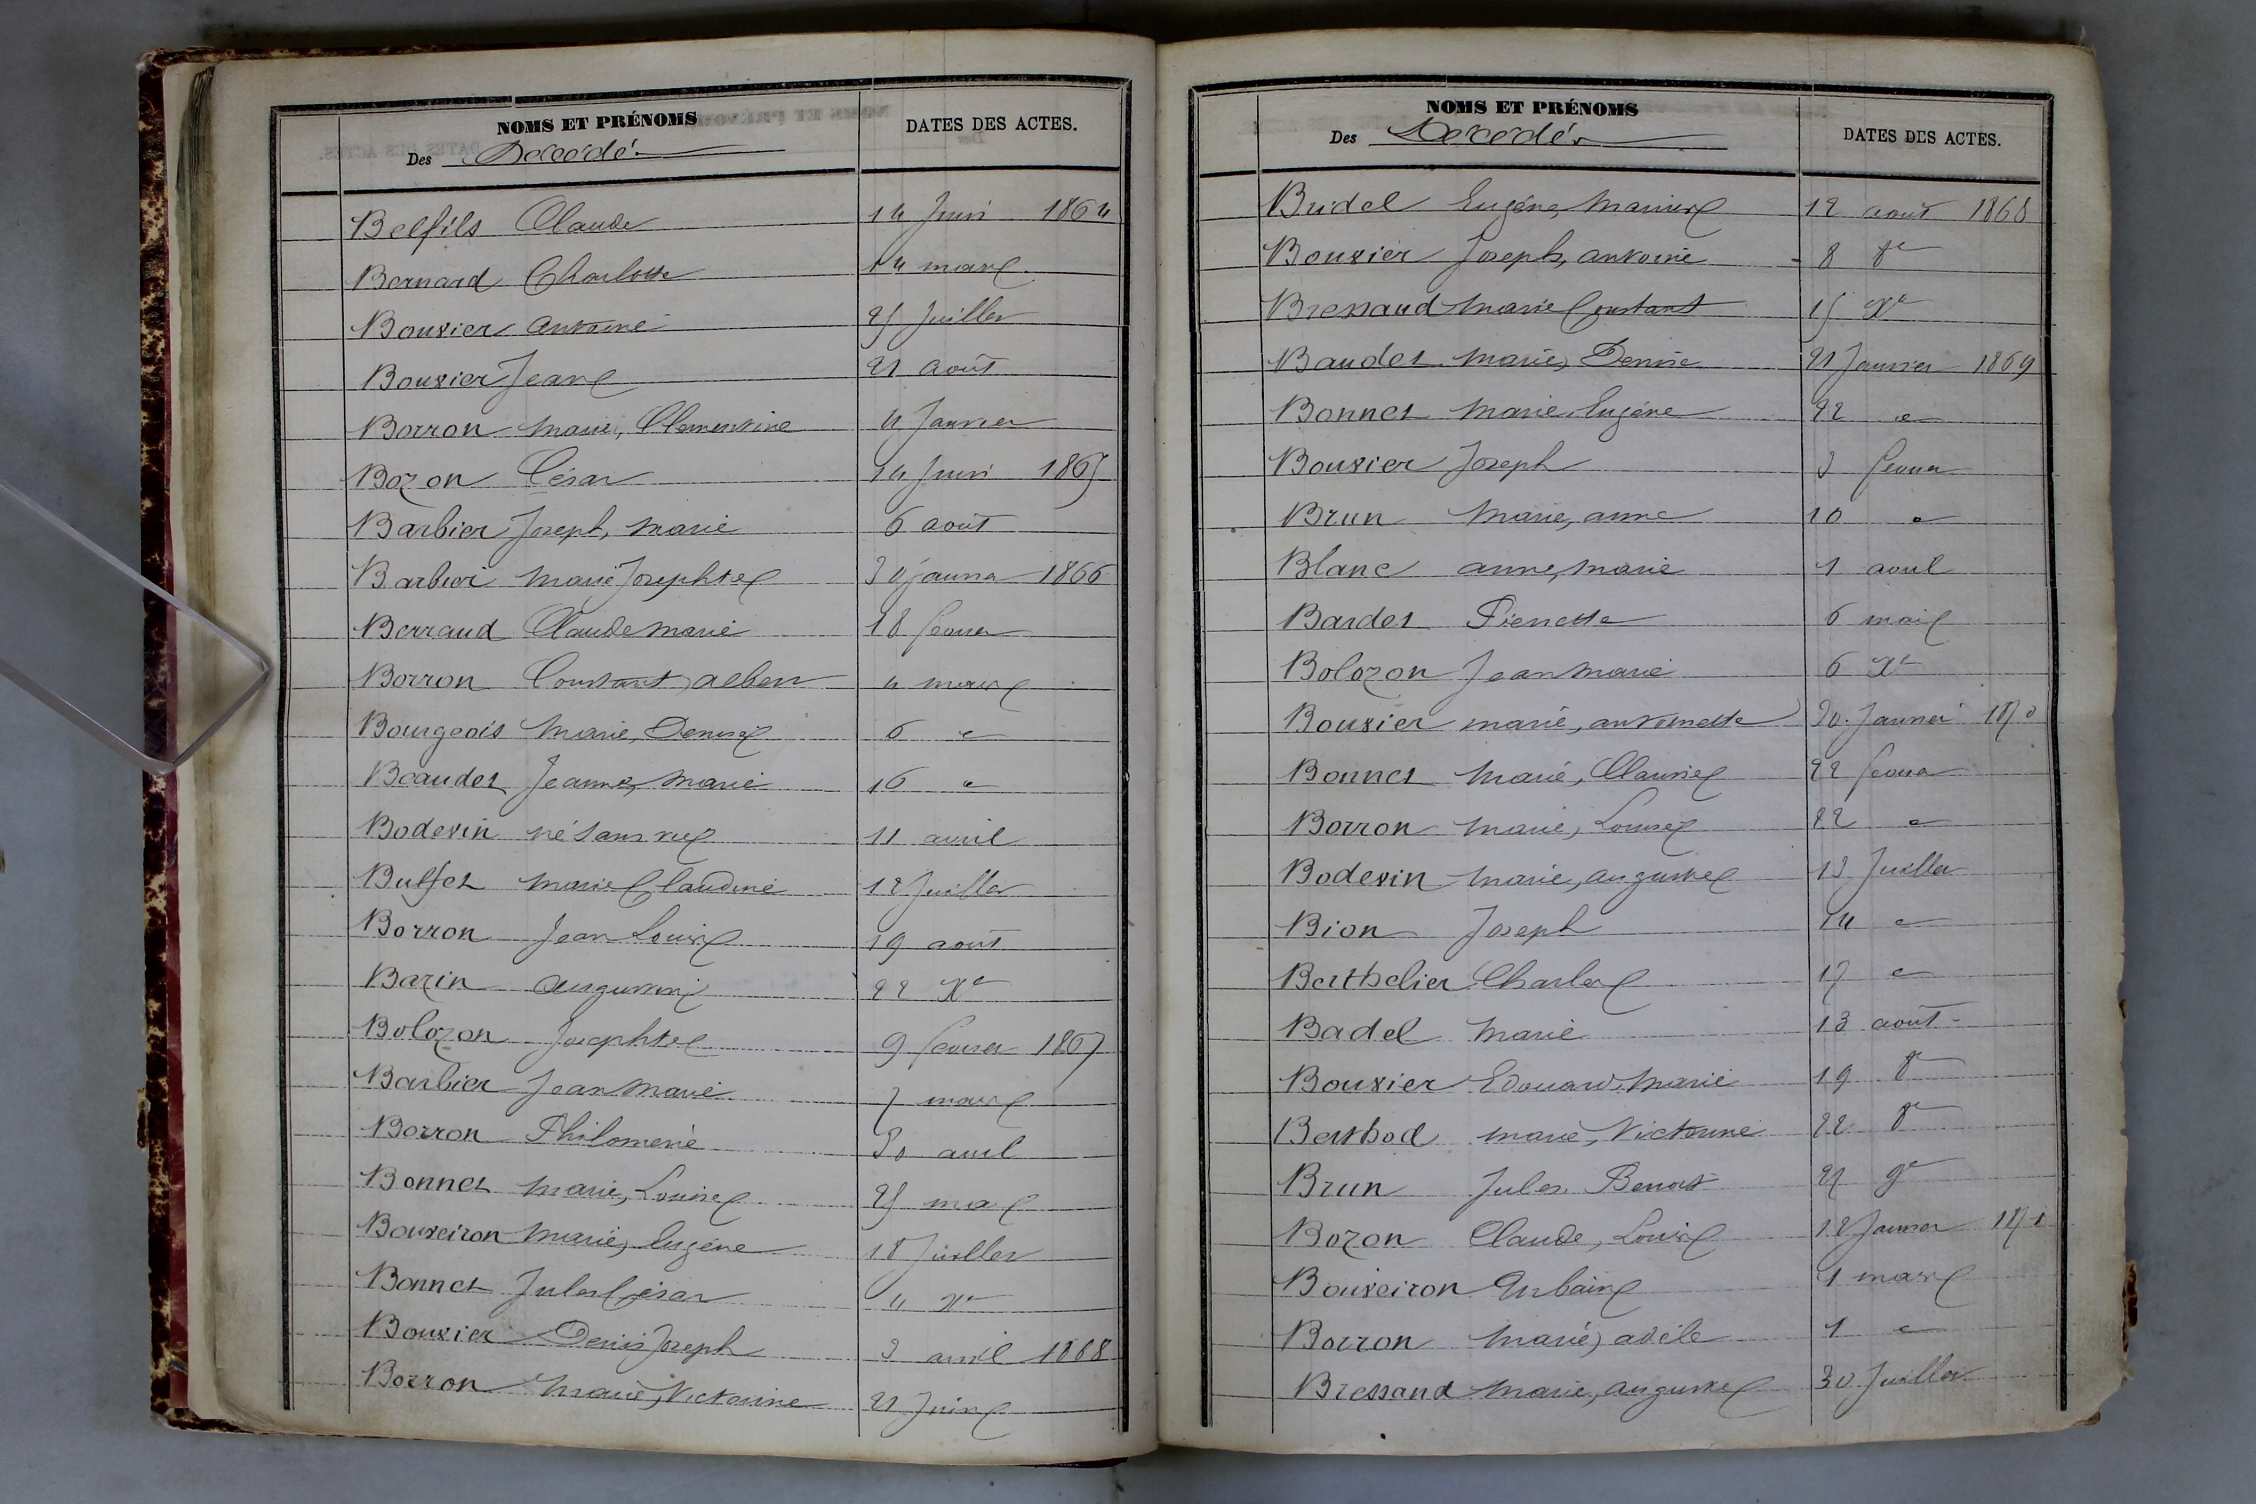 NOMS ET PRÉNOMS
Des Décédés
DATES DES ACTES.
Belfils Claude 14 Juin 1864
Bernard Charlotte 14 mars
Bouvier Antoine 25 Juillet
Bouvier Jean 21 août
Borron Marie, Clementine 4 Janvier
Bozon César 14 Juin 1865
Barbier Joseph, Marie 6 août
Barbier Marie Josephte 30 janvier 1866
Berraud Claude Marie 18 fevrier
Borron Constant, Albert 4 mars
Bourgeois Marie, Denise 6 "
Beaudet Jeanne, Marie 16 "
Bodevin né sans vie 11 avril
Buffet Marie Claudine 12 Juillet
Borron Jean Louis 19 août
Bazin Augustin 22 Xe
Bolozon Josephte 9 fevrier 1867
Barbier Jean Marie 7 mars
Borron Philomène 30 avril
Bonnet Marie, Louise 25 mai
Bouveiron Marie, Eugène 18 Juillet
Bonnet Jules César 4 Xe
Bouvier Denis Joseph 3 avril 1868
Borron Marie, Victorine 21 Juin
NOMS ET PRÉNOMS
Des Décédés
DATES DES ACTES.
Budel Eugène, Marius 12 août 1868
Bouvier Joseph, Antoine 8 8e
Bressand Marie Constant 15 Xe
Baudet Marie, Denise 21 Janvier 1869
Bonnet Marie Eugène 22 "
Bouvier Joseph 3 fevrier
Brun Marie, Anne 10 "
Blanc Anne, Marie 1 avril
Bardet Pierrette 6 mai
Bolozon Jean Marie 6 Xe
Bouvier Marie, Antoinette 30 Janvier 1870
Bonnet Marie, 22 fevrier
Borron Marie, Louise 22 "
Bodevin Marie, Auguste 13 Juillet
Bion Joseph 14 "
Berthelier Charles 17 "
Badel Marie 13 août
Bouvier Edouard, Marie 19 8e
Berthod Marie, Victorine 22 8e
Brun Jules Benoit 27 9e
Bozon Claude, Louis 12 Janvier 1871
Bouveiron Urbain 1 mars
Borron Marie, Adèle 1 "
Bressand Marie, Auguste 30 Juillet